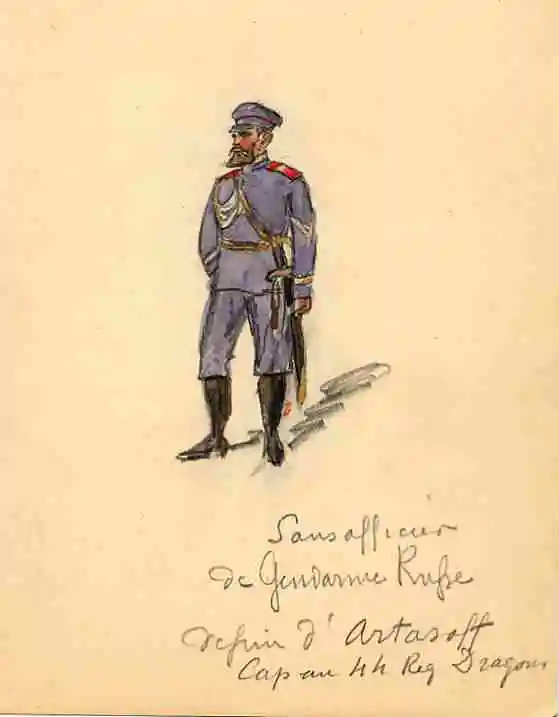 Sousofficier
de Gendarme Rufse
dessin d' Artasoff
Cap au 44 Reg Dragons